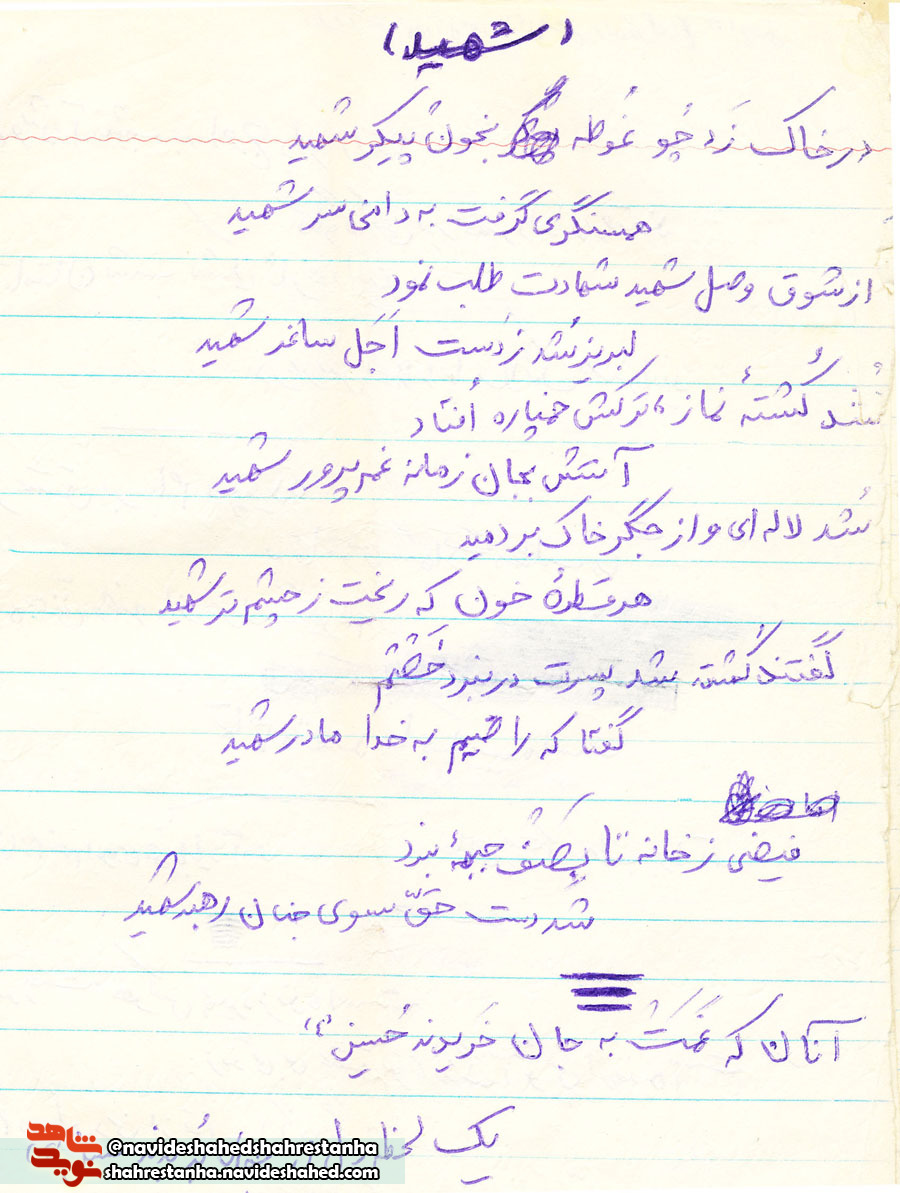 (شهید)
در خاک زَد چُو غُوطه بخون پیکر شهید
همسنگری گرفت به دامن سر شهید
از شوق وصل شهید شهادت طلب نمود
لبریز شُد ز دَست اَجَل ساغر شهید
شُد کُشتهٔ نماز، ترکش خمپاره اُفتاد
آتش بجان زمانه غم پرور شهید
شُد لاله ای و از جگر خاک بر دمید
هر قطرهٔ خون که ریخت ز چشم تر شهید
گفتند کُشته شد پسرت در نبرد خَصم
گفتا که راضیم به خدا مادر شهید
فیضی ز خانه تا بصَف جبههٔ نبرد
شد دست حقّ سوی جنان رهبر شهید
آنان که غَمَت به جان خَریدند حُسین (ع)
یک لحظه
شاهد
نوید
@navideshahedshahrestanha
shahrestanha.navideshahed.com